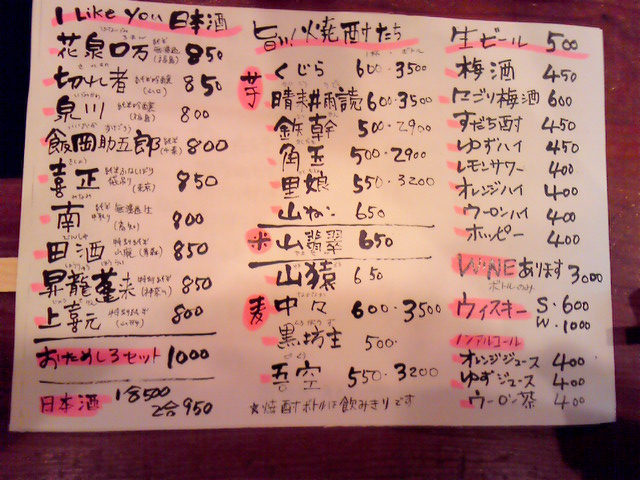 I Like You 日本酒
花泉ロ万 純米 無濾過 (福島) 850
切れ者 純米吟醸 (山口) 850
泉川 純米吟醸 (福島) 800
飯岡助五郎 純米 (千葉) 800
喜正 純米 (東京) 850
南 無濾過 中取り (高知) 800
田酒 特別純米 山廃 (青森) 850
昇龍蓬莱 特別純米 (神奈川) 850
上喜元 特別純米 (山形) 800
おためしろセット 1000
日本酒 1合500
2合950
旨い!焼酎たち
芋
くじら 600・3500
晴耕雨読 600・3500
鉄幹 500・2900
角玉 500・2900
里娘 550・3200
山ねこ 650
米 山翡翠 650
麦
山猿 650
中々 600・3500
黒坊主 500・
吾空 550・3200
☆焼酎ボトルは飲みきりです
生ビール 500
梅酒 450
にごり梅酒 600
すだち酎 450
ゆずハイ 450
レモンサワー 400
オレンジハイ 400
ウーロンハイ 400
ホッピー 400
WINEあります 3000
ボトルのみ
ウィスキー S・600
W・1000
ノンアルコール
オレンジジュース 400
ゆずジュース 400
ウーロン茶 400